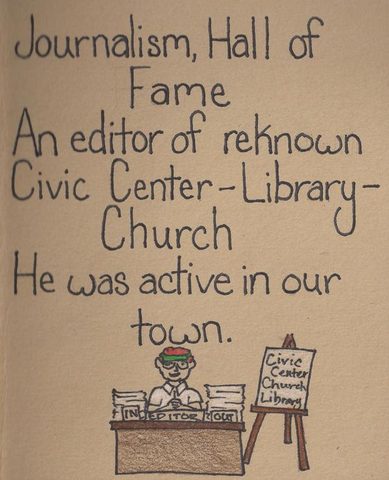 Journalism, Hall of
Fame
An editor of reknown
Civic Center-Library-
Church
He was active in our
town.
Civic
Center
Church
Library
IN EDITOR OUT